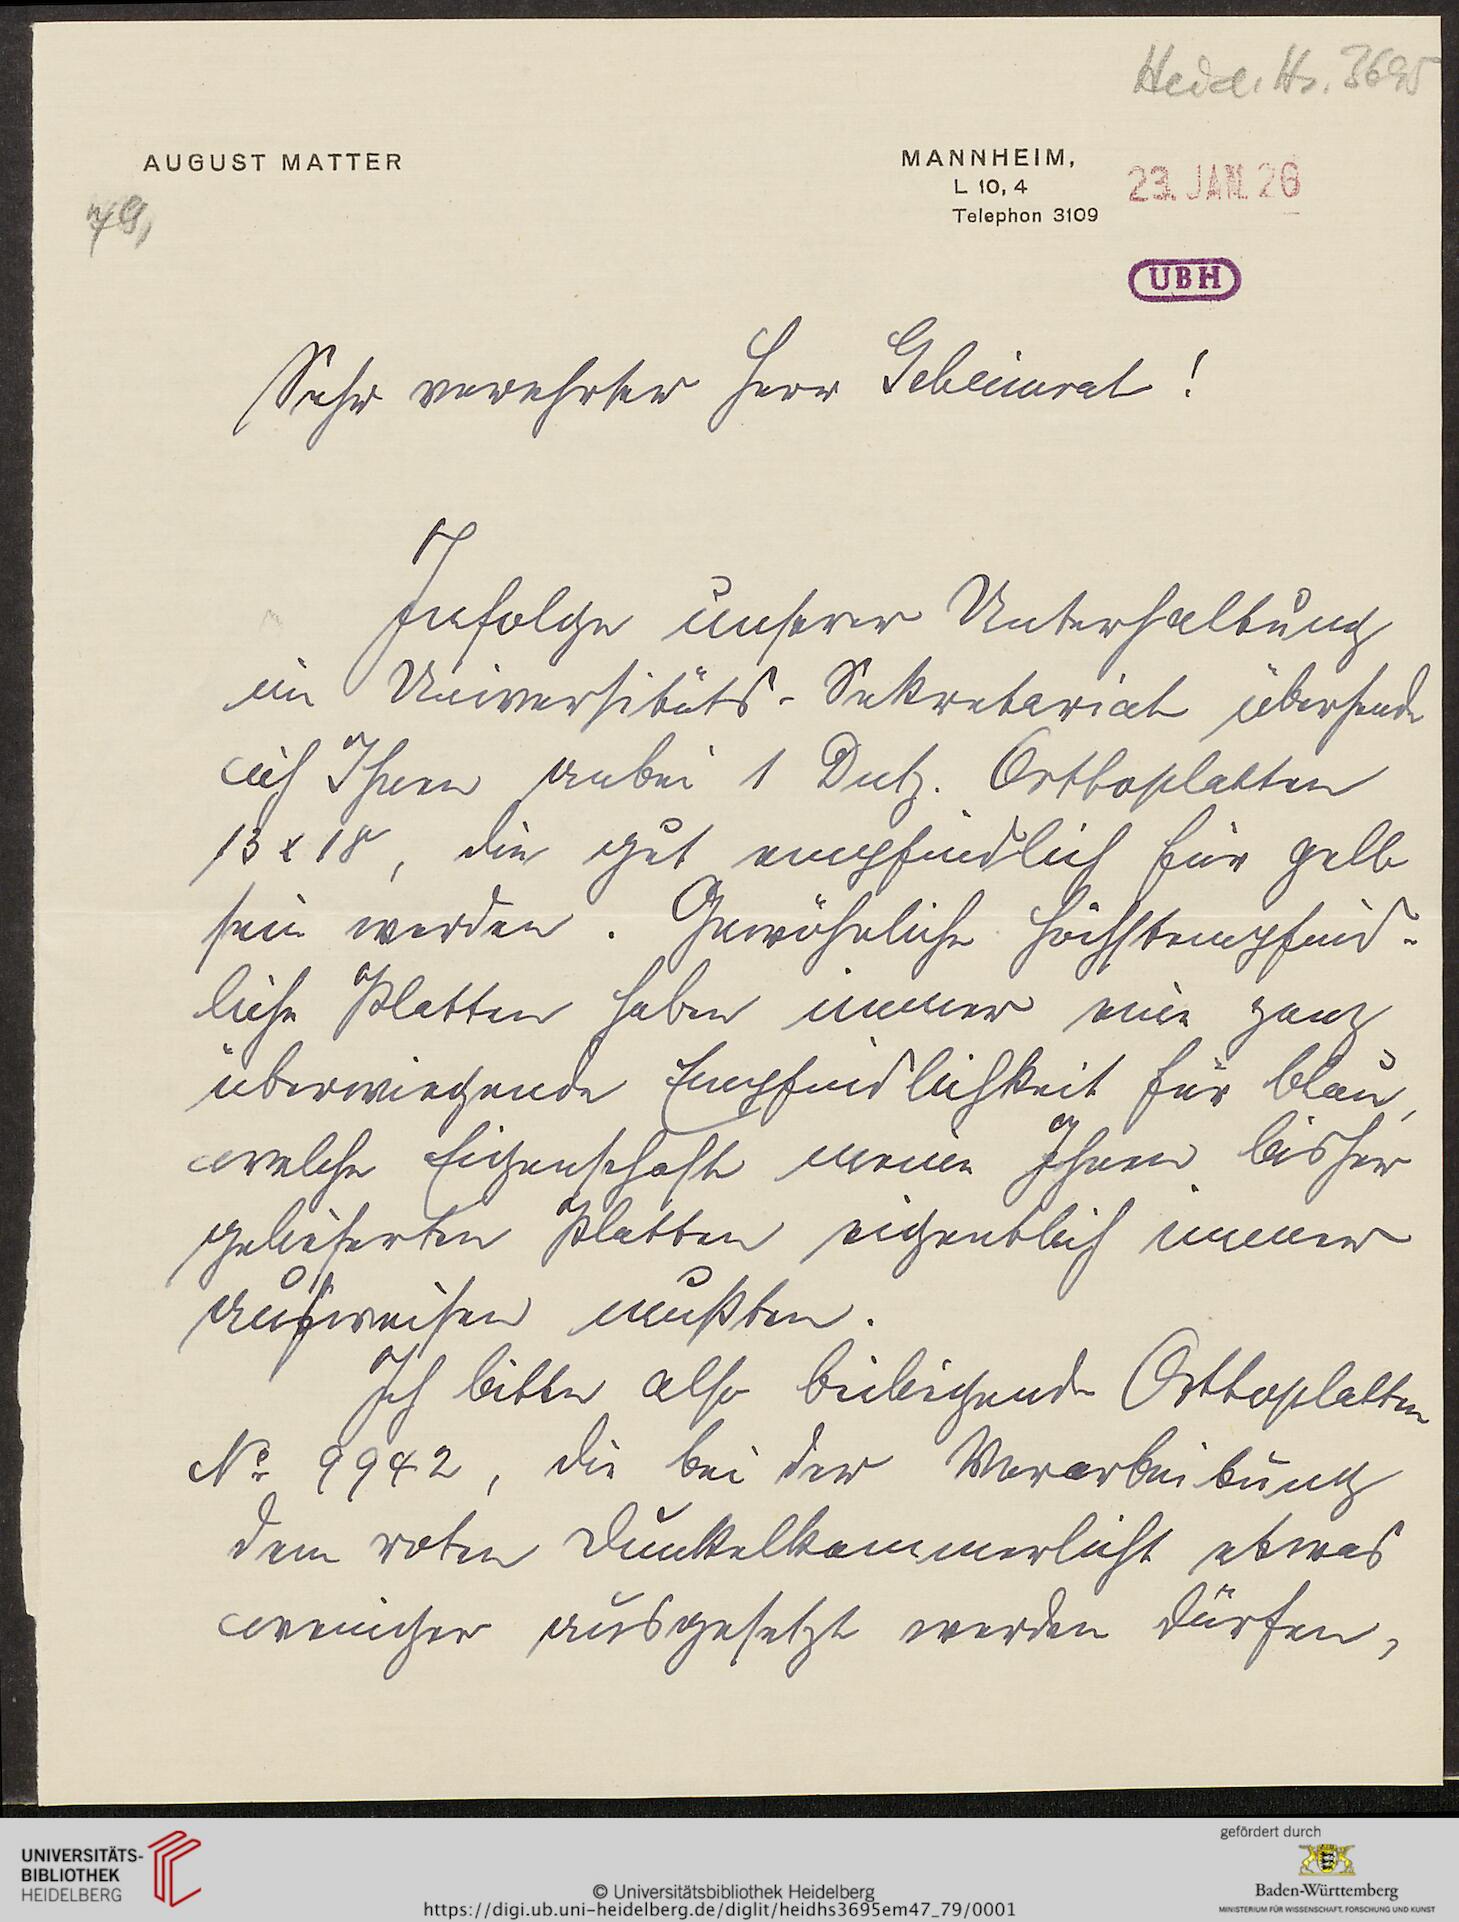 Heid. Hs. 3695
AUGUST MATTER
MANNHEIM,
L 10, 4
Telephon 3109
23. JAN. 26
79,
UBH
Sehr verehrter Herr Geheimrat!
Infolge unserer Unterhaltung
im Universitäts-Sekretariat übersende
ich Ihnen anbei 1 Dutz. Orthoplatten
13 x 18, die gut empfindlich für gelb
sein werden. Gewöhnliche höchstempfind-
liche Platten haben immer eine ganz
überwiegende Empfindlichkeit für blau,
welche Eigenschaft meine Ihnen bisher
gelieferten Platten eigentlich immer
aufweisen mußten.
Ich bitte also beiliegende Orthoplatten
No 9942, die bei der Verarbeitung
dem roten Dunkelkammerlicht etwas
weniger ausgesetzt werden dürfen,
UNIVERSITÄTS-
BIBLIOTHEK
HEIDELBERG
© Universitätsbibliothek Heidelberg
https://digi.ub.uni-heidelberg.de/diglit/heidhs3695em47_79/0001
gefördert durch
Baden-Württemberg
MINISTERIUM FÜR WISSENSCHAFT, FORSCHUNG UND KUNST